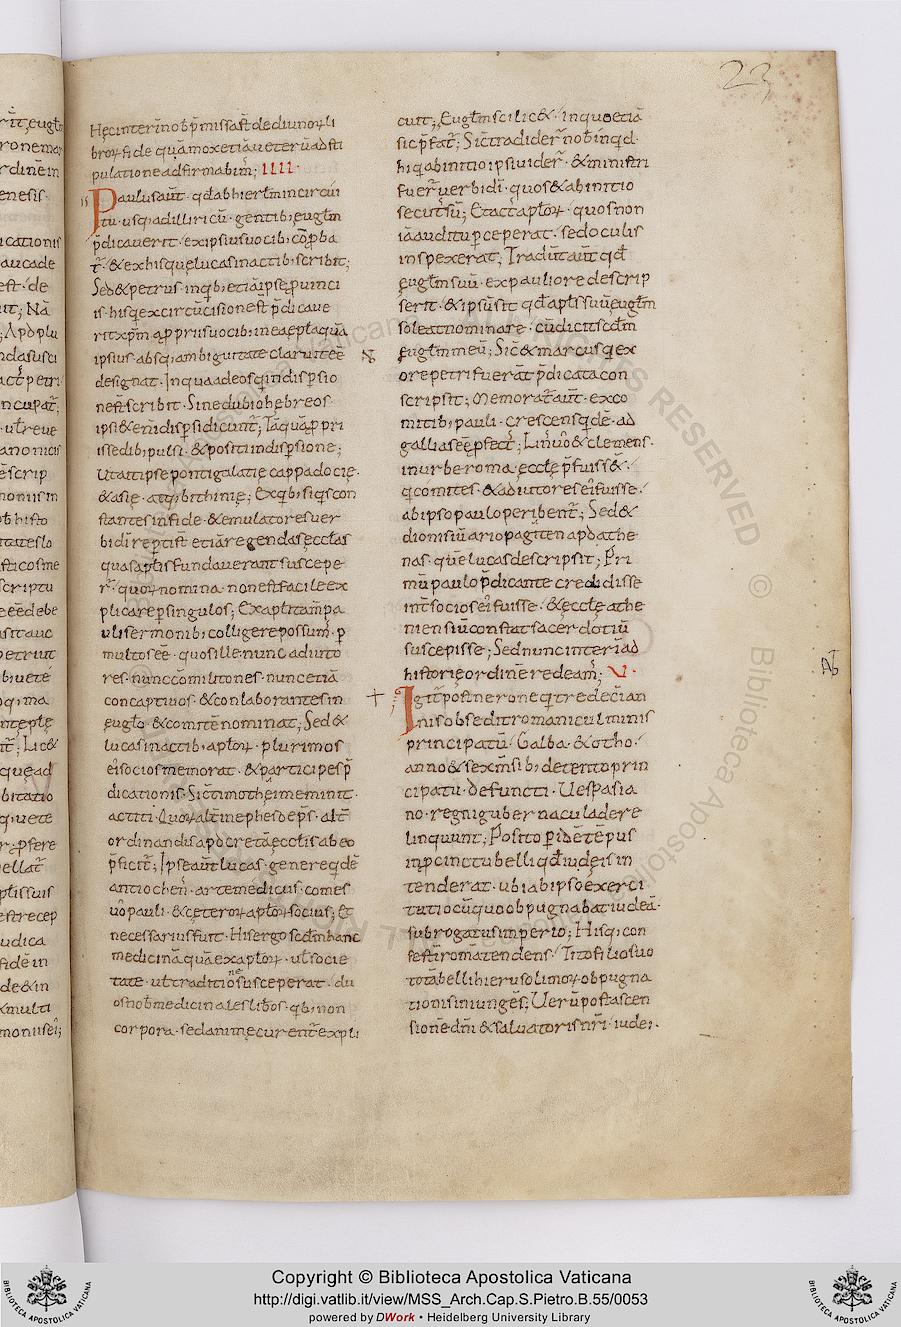 23
Hęc interi nob p̄missa st̄ de diuinoꝝ li
broꝝ fide quā mox etiā ueterū adsti
pulatione adfirmabim̄; IIII·
Paulus aut̄· qd̄ ab hierl̄m in circūi
tu· usq; ad illiricū· gentib; eugl̄m
p̄dicauerit· ex ipsius uocib; cōp̄ba
t̄· & ex his quę lucas in actib; scribit;
Sed & petrus· in qb; etiā ipse puinci
is· his q; ex circūcisione st̄ p̄dicaue
rit xp̄m a ppriis uocib; in ea ep̄la quā
ipsius absq; ambiguitate claruit eē
designat· In qua adeos qi in disp̄sio
ne st̄ scribit· Sine dubio hebreos·
ipsi & eni disp̄si dicunt̄; Tāquā p pri
is sedib; pulsi· & positi in disp̄sione;
Ut ait ipse ponti galatię cappadocię·
& asię· atq; bithinię; Ex qb; siqs con
stantes in fide· & emulatores uer
bi di reptist̄ etiā regendas ęccłas
quas aplīs fundauerant suscepe
r̄· quoꝝ nomina· non est facile ex
plicare p singulos; Ex apl̄i tam̄ pa
uli sermonib; colligere possum̄· p
multos eē· quos ille nunc adiuto
res· nunc cōmilitones· nunc etiā
concaptiuos· & conlaborantes in
eugl̄o· & comitē nominat; Sed &
lucas in actib; aploꝝ· plurimos
ei socios memorat· & participes p̄
dicationis· Sic timothei meminit·
ac titi· Quoꝝ alt̄ in ephes de ps̄· alt̄
ordinandis apo cretā ęccłis ab eo
p̄ficit̄; Ipse aut̄ lucas· genere qdē
antiochen̄· arte medicus· comes
uo pauli· & ceteroꝝ aploꝝ socius; Et
necessarius fuit· His ergo scd̄m hanc
medicinā quā ex aploꝝ· ut̄ socie
tate· ut̄ traditione susceperat· du
os nob medicinales libros· qb; non
corpora· sed animę curent̄ expli
cuit; Eugl̄m scilic&· in quo etiā
sic p̄fat̄; Sic̄ tradider̄ nob inqd·
hi q ab initio ipsi uider̄· & ministri
fuer̄ uerbi di· quos & ab initio
secut̄ sū; Et act̄ aploꝝ· quos non
iā auditu p ceperat· sed oculis
inspexerat; Tradūt aut̄ qd̄
ęugl̄m suū· ex pauli ore descrip
serit· & ipsū sit qd̄ apl̄s suū ęugl̄m
soleat nominare· cū dicit scd̄m
ęugl̄m meū; Sic & marcus q; ex
ore petri fuerāt p̄dicata con
scripsit; Memorat̄ aut̄· ex co
mitib; pauli· crescens qdē· ad
gallias eē pfect̄; Lin' uo & clemens·
in urbe roma· ęccłę p̄fuiss&·
q comites· & adiutores ei fuisse·
ab ipso paulo peribent̄; Sed &
dionisiū ariopagiten apd athe
nas· quē lucas descripsit; Pri
mū paulo p̄dicante credidisse
int̄ socios ei fuisse· & ęccłę athe
niensiū constat sacerdotiū
suscepisse; Sed nunc interi ad
historię ordinē redeam̄; V·
Igit̄ post nerone q tredeci an
nis obsedit romani culminis
principatū· Galba· & otho·
anno & sex m̄sib; detento prin
cipatu· defuncti· Uespasia
no· regni gubernacula dere
linquunt; Posito p idē tēpus
in pcinctu belli qd̄ iudeis in
tenderat· ubi ab ipso exerci
tu tiocū quo obpugnabat iudeā·
subrogatus imperio; His q; con
festi romā tendens· Tito filio suo
totā belli hierusolimoꝝ obpugna
tionis iniungēs; Uerū post ascen
sionē dn̄i & saluatoris nr̄i· iudei·
Copyright © Biblioteca Apostolica Vaticana
http://digi.vatlib.it/view/MSS_Arch.Cap.S.Pietro.B.55/0053
powered by DWork • Heidelberg University Library